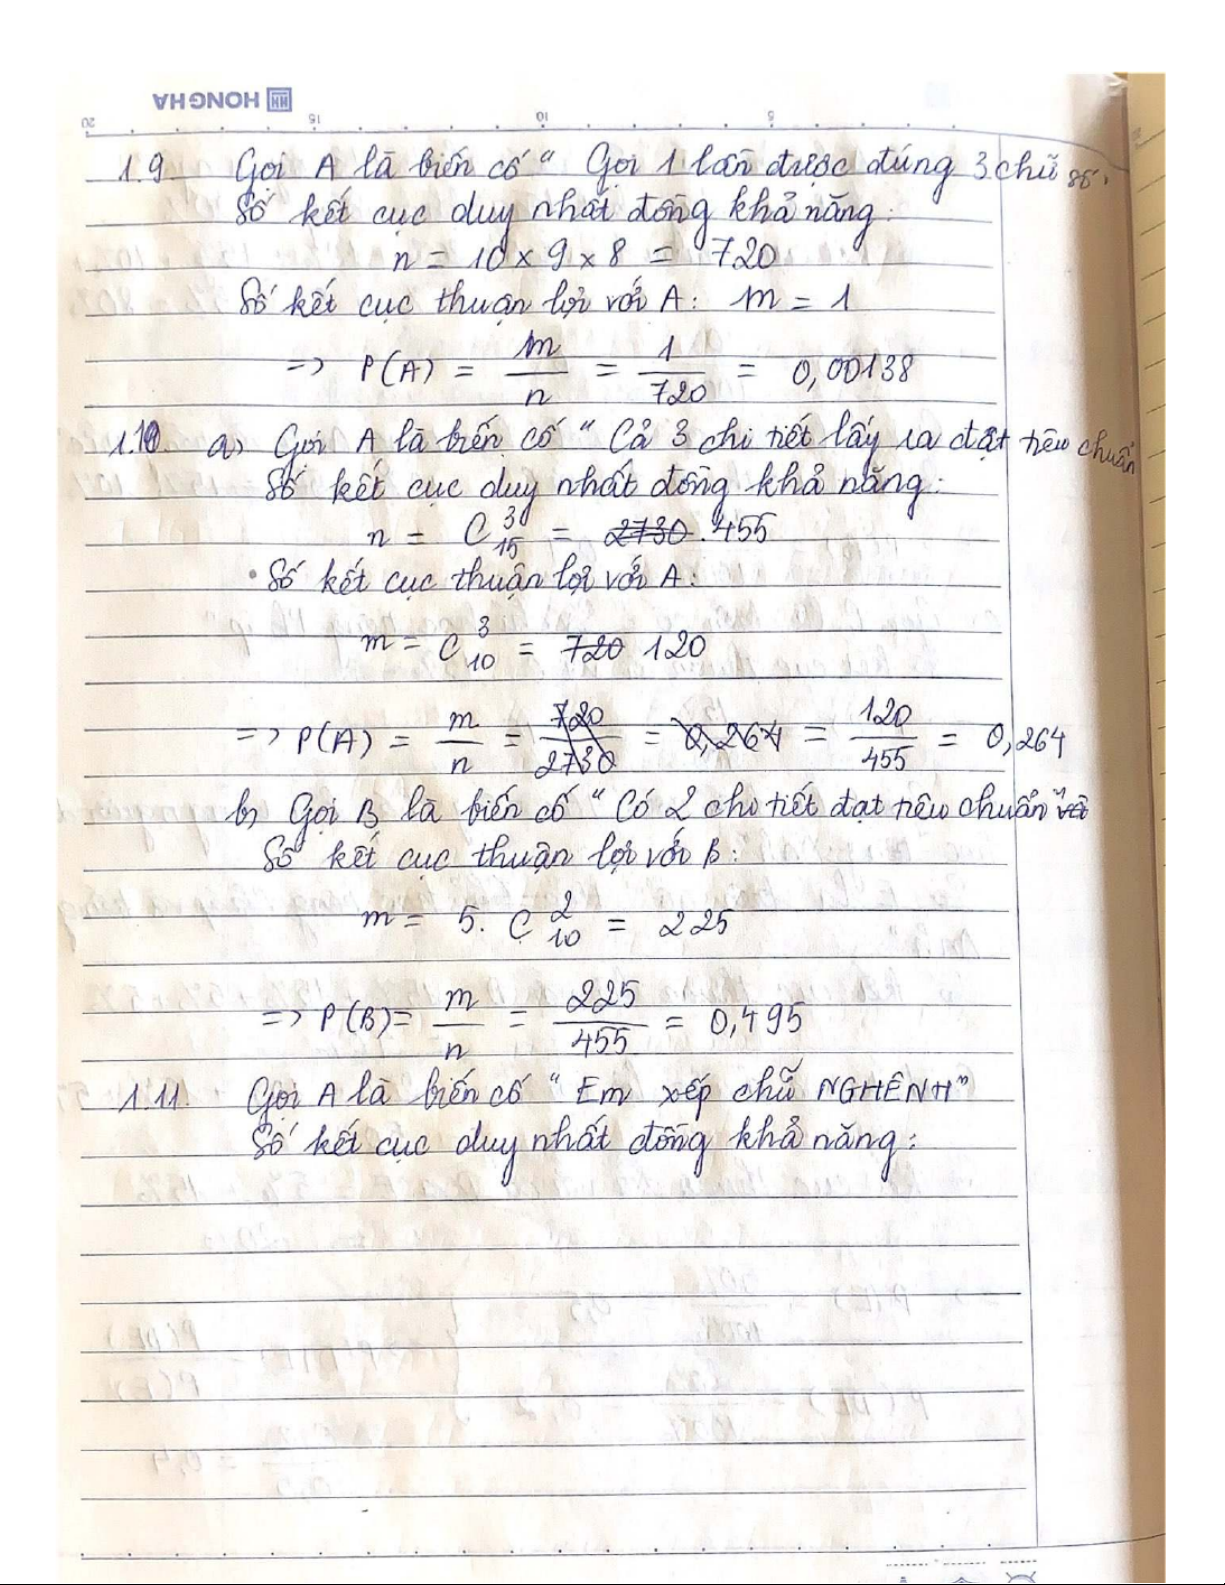 HONG HA
20 15 10 5
1.9 Gọi A là biến cố “ Gọi 1 lần được đúng 3 chữ số.
Số kết cục duy nhất đồng khả năng:
n = 10 x 9 x 8 = 720
Số kết cục thuận lợi với A: m = 1
=> P(A) = m/n = 1/720 = 0,00138
1.10 a) Gọi A là biến cố “ Cả 3 chi tiết lấy ra đạt tiêu chuẩn
Số kết cục duy nhất đồng khả năng:
n = C_15^3 = 2730 . 455
• Số kết cục thuận lợi với A:
m = C_10^3 = 720 120
=> P(A) = m/n = 720/2730 = 0,264 = 120/455 = 0,264
b) Gọi B là biến cố “ Có 2 chi tiết đạt tiêu chuẩn”
Số kết cục thuận lợi với B:
m = 5. C_10^2 = 225
=> P(B) = m/n = 225/455 = 0,495
1.11. Gọi A là biến cố “ Em xếp chữ NGHÊNH”
Số kết cục duy nhất đồng khả năng: